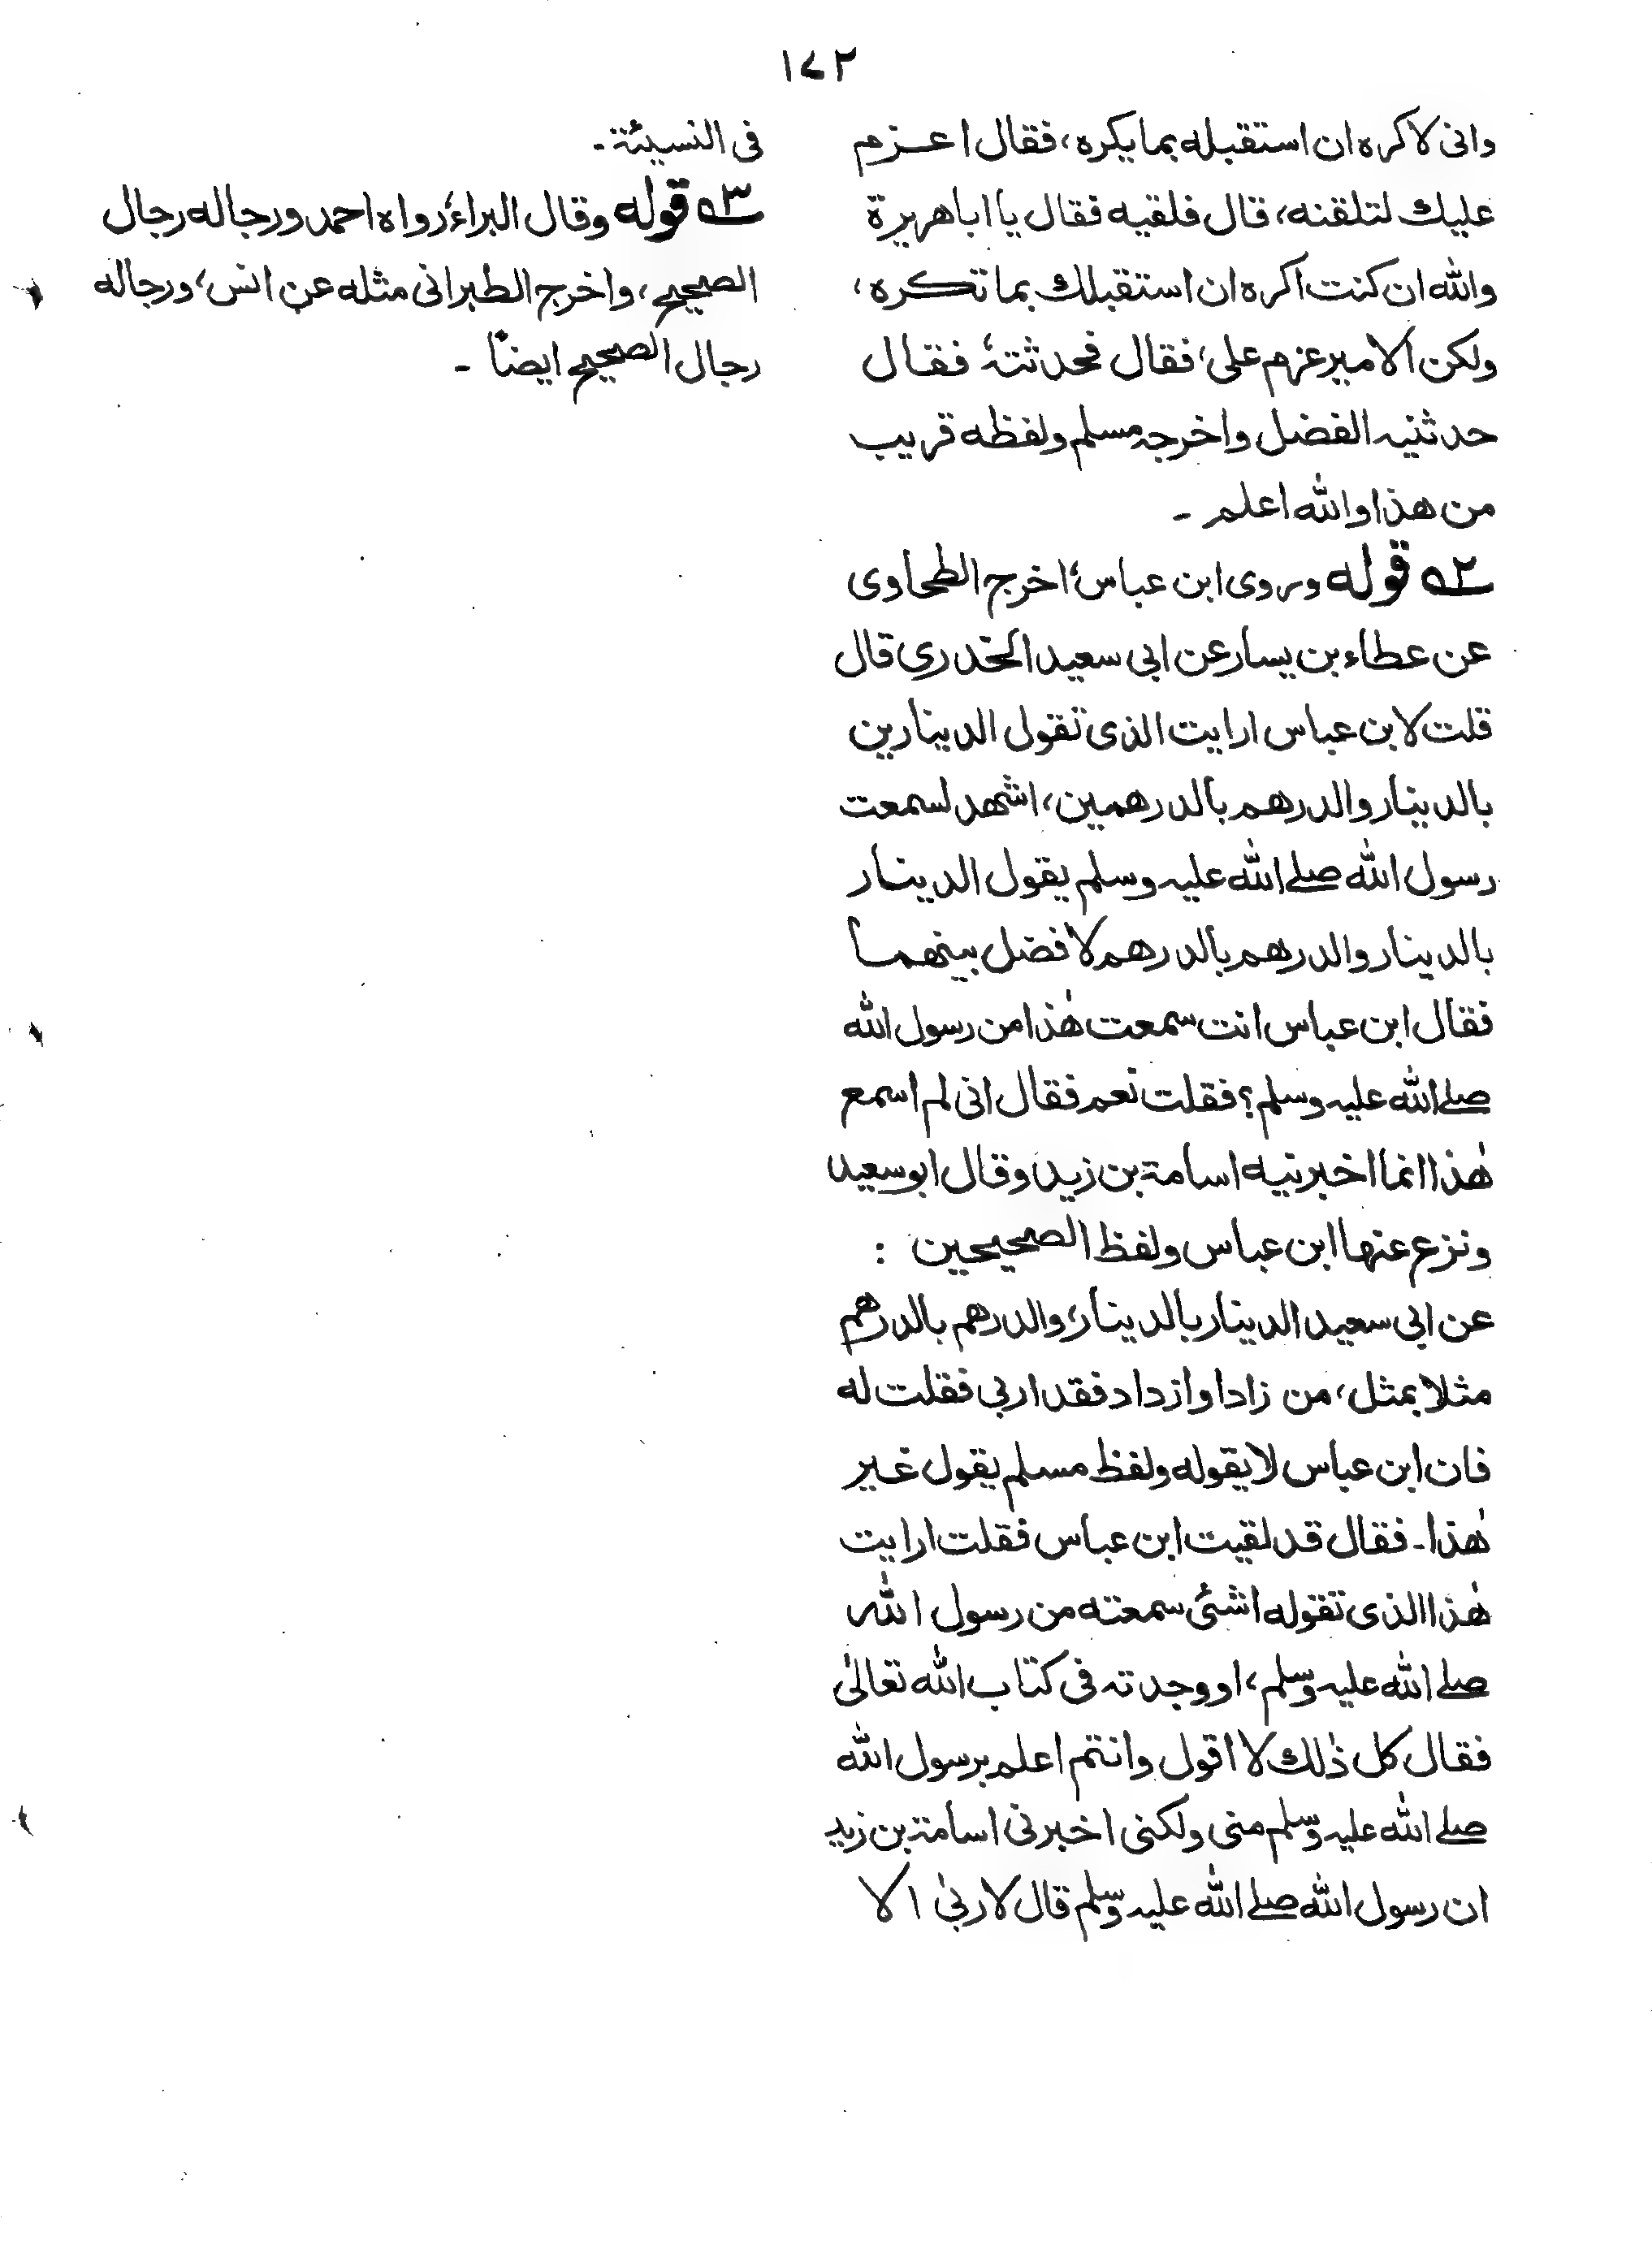 ١٧٢
وانى لاكره ان استقبله بما يكره، فقال اعزم
عليك لتلقنه، قال فلقيه فقال يا اباهريرة
والله ان كنت اكره ان استقبلك بما تكره،
ولكن الامير عزم على، فقال فحدثتهٗ فقال
حدثنيه الفضل واخرجه مسلم ولفظه قريب
من هذا والله اعلم ـ
٥٢ قوله وروى ابن عباسؓ اخرج الطحاوى
عن عطاء بن يسار عن ابى سعيد الخدرى قال
قلت لابن عباس ارايت الذى تقول الدينارين
بالدينار والدرهم بالدرهمين، اشهد لسمعت
رسول الله صلے الله عليه وسلم يقول الدينار
بالدينار والدرهم بالدرهم لا فضل بينهما
فقال ابن عباس انت سمعت هٰذا من رسول الله
صلے الله عليه وسلم؟ فقلت نعم فقال انى لم اسمع
هٰذا انما اخبرنيه اسامة بن زيد وقال ابوسعيد
ونزع عنها ابن عباس ولفظ الصحيحين :
عن ابى سعيد الدينار بالدينار، والدرهم بالدرهم
مثلا بمثل، من زاد اوازداد فقد اربى فقلت له
فان ابن عباس لا يقوله ولفظ مسلم يقول غير
هٰذا ـ فقال قد لقيت ابن عباس فقلت ارايت
هٰذا الذى تقوله اشئى سمعته من رسول الله
صلے الله عليه وسلم، او وجدته فى كتاب الله تعالىٰ
فقال كل ذٰلك لا اقول وانتم اعلم برسول الله
صلے الله عليه وسلم منى ولكنى اخبرنى اسامة بن زيد
ان رسول الله صلے الله عليه وسلم قال لا ربىٰ الا
فى النسيئة ـ
٥٣ قوله وقال البراءؓ رواه احمد ورجاله رجال
الصحيح، واخرج الطبرانى مثله عن انس، ورجاله
رجال الصحيح ايضاً ـ